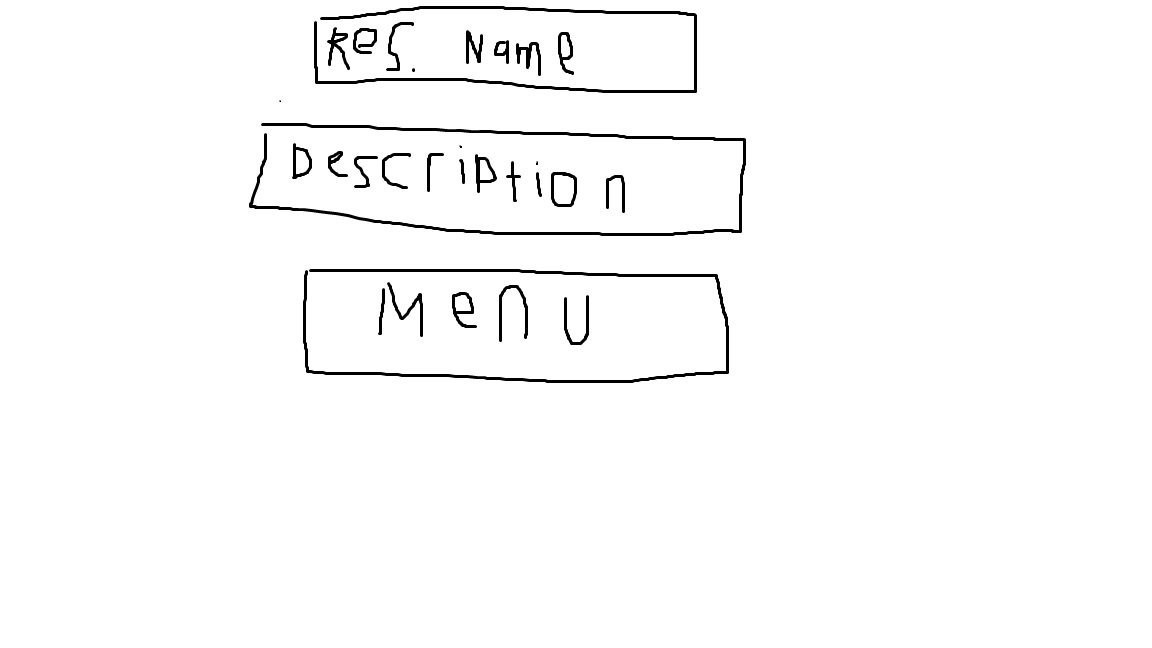 Res. Name
Description
Menu